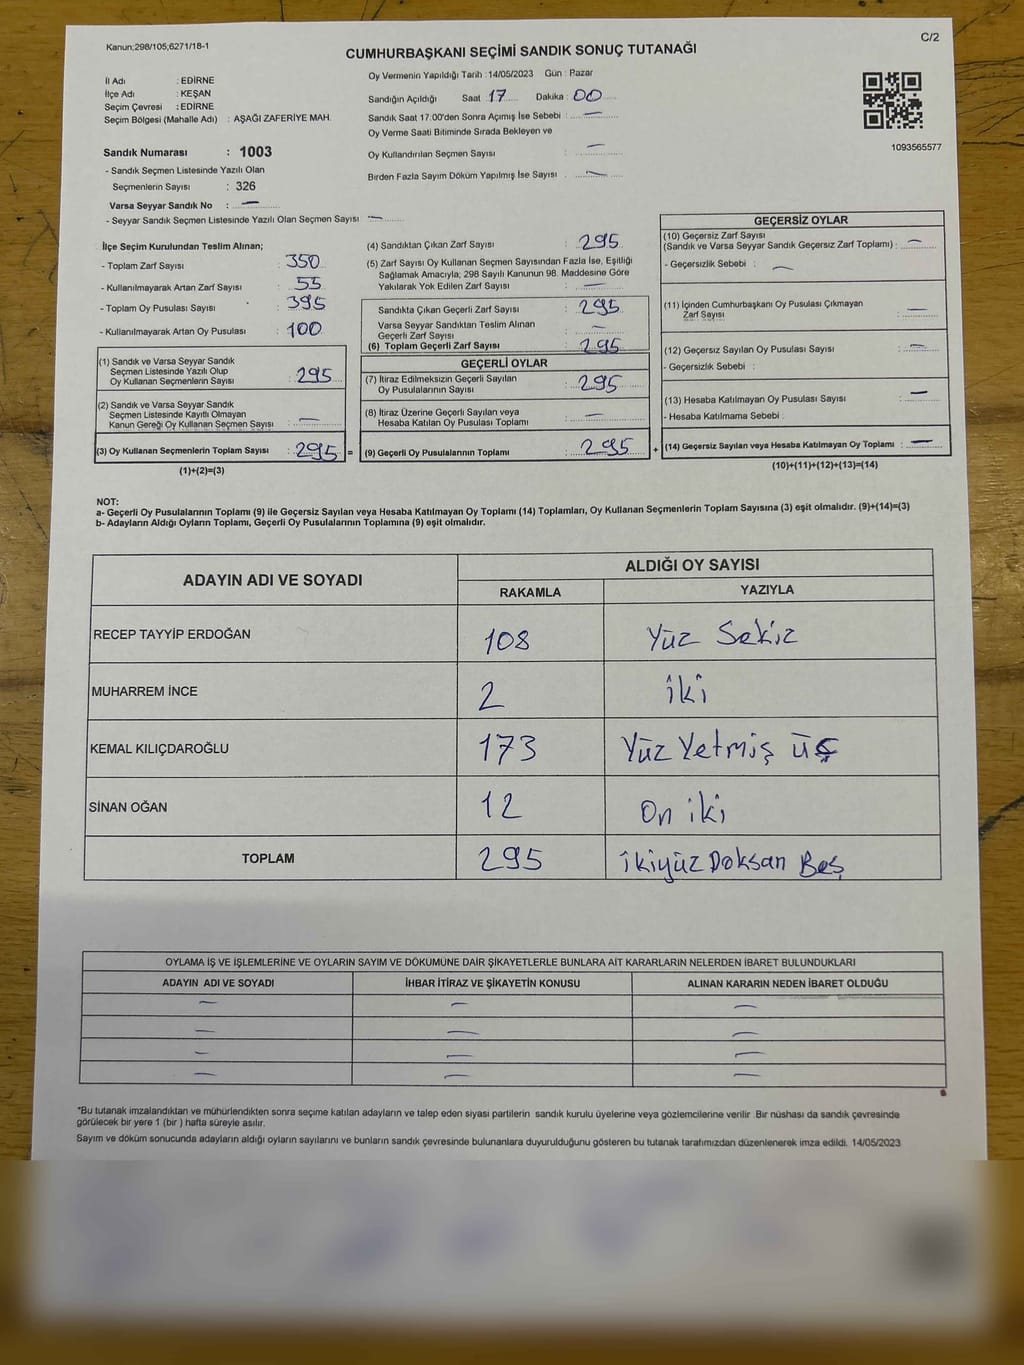 Kanun;298/105;6271/18-1
C/2
CUMHURBAŞKANI SEÇİMİ SANDIK SONUÇ TUTANAĞI
İl Adı : EDİRNE
İlçe Adı : KEŞAN
Seçim Çevresi : EDİRNE
Seçim Bölgesi (Mahalle Adı) : AŞAĞI ZAFERİYE MAH.
Sandık Numarası : 1003
- Sandık Seçmen Listesinde Yazılı Olan
Seçmenlerin Sayısı : 326
Varsa Seyyar Sandık No : —
- Seyyar Sandık Seçmen Listesinde Yazılı Olan Seçmen Sayısı —
Oy Vermenin Yapıldığı Tarih :14/05/2023 Gün : Pazar
Sandığın Açıldığı Saat :17 Dakika : 00
Sandık Saat 17:00'den Sonra Açımış İse Sebebi : —
Oy Verme Saati Bitiminde Sırada Bekleyen ve
Oy Kullandırılan Seçmen Sayısı : —
Birden Fazla Sayım Döküm Yapılmış İse Sayısı : —
1093565577
İlçe Seçim Kurulundan Teslim Alınan;
- Toplam Zarf Sayısı : 350
- Kullanılmayarak Artan Zarf Sayısı : 55
- Toplam Oy Pusulası Sayısı : 395
- Kullanılmayarak Artan Oy Pusulası : 100
(1) Sandık ve Varsa Seyyar Sandık
Seçmen Listesinde Yazılı Olup
Oy Kullanan Seçmenlerin Sayısı : 295
(2) Sandık ve Varsa Seyyar Sandık
Seçmen Listesinde Kayıtlı Olmayan
Kanun Gereği Oy Kullanan Seçmen Sayısı : —
(3) Oy Kullanan Seçmenlerin Toplam Sayısı : 295 =
(1)+(2)=(3)
(4) Sandıktan Çıkan Zarf Sayısı : 295
(5) Zarf Sayısı Oy Kullanan Seçmen Sayısından Fazla İse, Eşitliği
Sağlamak Amacıyla; 298 Sayılı Kanunun 98. Maddesine Göre
Yakılarak Yok Edilen Zarf Sayısı : —
Sandıkta Çıkan Geçerli Zarf Sayısı : 295
Varsa Seyyar Sandıktan Teslim Alınan
Geçerli Zarf Sayısı : —
(6) Toplam Geçerli Zarf Sayısı : 295
GEÇERLİ OYLAR
(7) İtiraz Edilmeksizin Geçerli Sayılan
Oy Pusulalarının Sayısı : 295
(8) İtiraz Üzerine Geçerli Sayılan veya
Hesaba Katılan Oy Pusulası Toplamı : —
(9) Geçerli Oy Pusulalarının Toplamı : 295 +
GEÇERSİZ OYLAR
(10) Geçersiz Zarf Sayısı
(Sandık ve Varsa Seyyar Sandık Geçersiz Zarf Toplamı) : —
- Geçersizlik Sebebi : —
(11) İçinden Cumhurbaşkanı Oy Pusulası Çıkmayan
Zarf Sayısı : —
(12) Geçersiz Sayılan Oy Pusulası Sayısı : —
- Geçersizlik Sebebi :
(13) Hesaba Katılmayan Oy Pusulası Sayısı : —
- Hesaba Katılmama Sebebi :
(14) Geçersiz Sayılan veya Hesaba Katılmayan Oy Toplamı : —
(10)+(11)+(12)+(13)=(14)
NOT:
a- Geçerli Oy Pusulalarının Toplamı (9) ile Geçersiz Sayılan veya Hesaba Katılmayan Oy Toplamı (14) Toplamları, Oy Kullanan Seçmenlerin Toplam Sayısına (3) eşit olmalıdır. (9)+(14)=(3)
b- Adayların Aldığı Oyların Toplamı, Geçerli Oy Pusulalarının Toplamına (9) eşit olmalıdır.
ADAYIN ADI VE SOYADI
ALDIĞI OY SAYISI
RAKAMLA YAZIYLA
RECEP TAYYİP ERDOĞAN 108 Yüz Sekiz
MUHARREM İNCE 2 iki
KEMAL KILIÇDAROĞLU 173 Yüz Yetmiş üç
SİNAN OĞAN 12 On iki
TOPLAM 295 ikiyüz Doksan Beş
OYLAMA İŞ VE İŞLEMLERİNE VE OYLARIN SAYIM VE DÖKÜMÜNE DAİR ŞİKAYETLERLE BUNLARA AİT KARARLARIN NELERDEN İBARET BULUNDUKLARI
ADAYIN ADI VE SOYADI İHBAR İTİRAZ VE ŞİKAYETİN KONUSU ALINAN KARARIN NEDEN İBARET OLDUĞU
— — —
— — —
— — —
— — —
*Bu tutanak imzalandıktan ve mühürlendikten sonra seçime katılan adayların ve talep eden siyasi partilerin sandık kurulu üyelerine veya gözlemcilerine verilir .Bir nüshası da sandık çevresinde
görülecek bir yere 1 (bir ) hafta süreyle asılır.
Sayım ve döküm sonucunda adayların aldığı oyların sayılarını ve bunların sandık çevresinde bulunanlara duyurulduğunu gösteren bu tutanak tarafımızdan düzenlenerek imza edildi. 14/05/2023